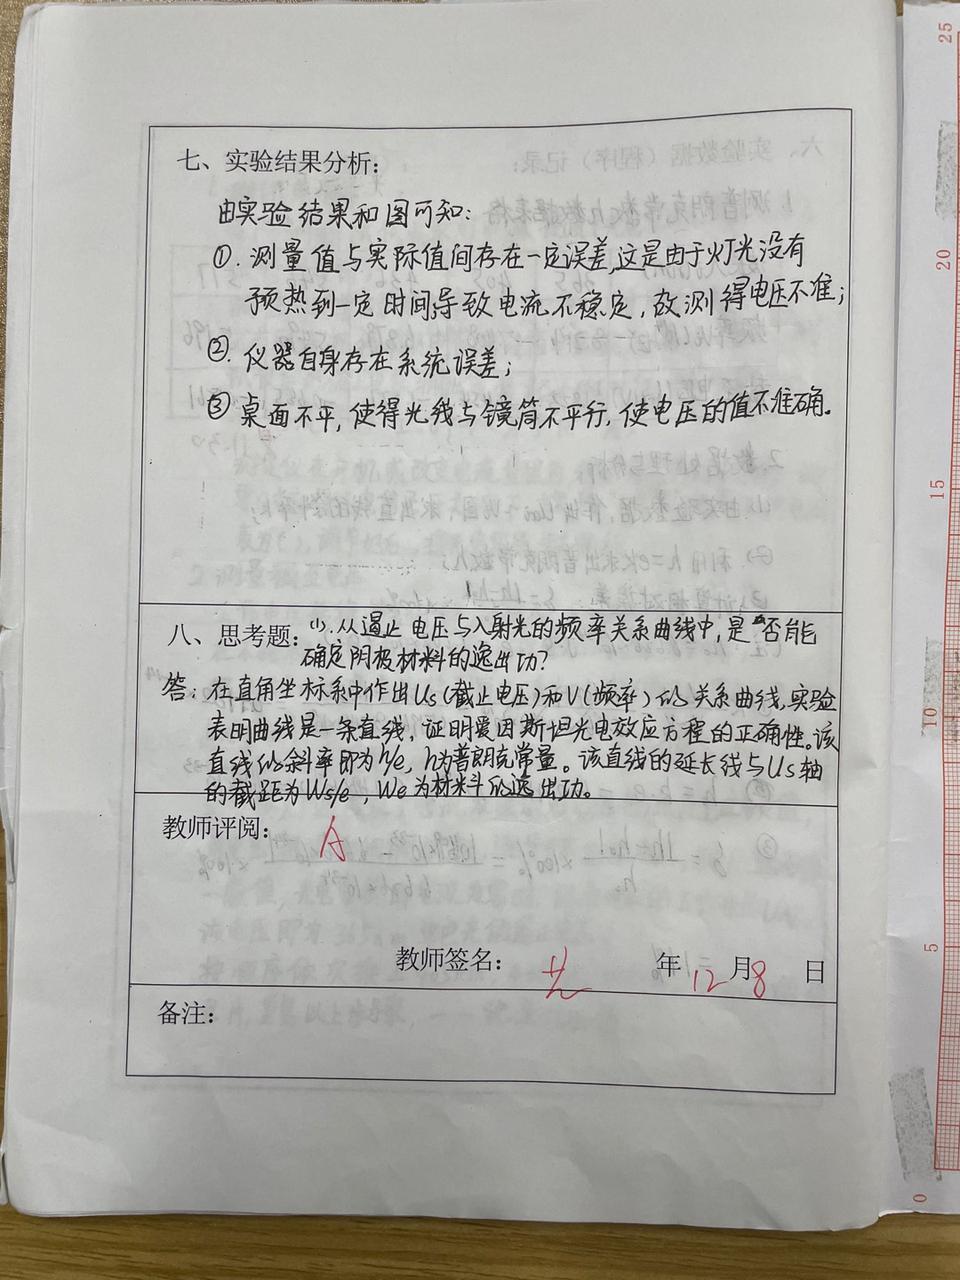 七、实验结果分析:
由实验结果和图可知:
①. 测量值与实际值间存在一定误差,这是由于灯光没有
预热到一定时间,导致电流不稳定,故测得电压不准;
②. 仪器自身存在系统误差;
③ 桌面不平,使得光线与镜筒不平行,使电压的值不准确。
八、思考题: (1). 从遏止电压与入射光的频率关系曲线中,是否能
确定阴极材料的逸出功?
答: 在直角坐标系中作出Us(截止电压)和V(频率)的关系曲线,实验
表明曲线是一条直线,证明爱因斯坦光电效应方程的正确性。该
直线的斜率即为h/e,h为普朗克常量。该直线的延长线与Us轴
的截距为Ws/e,We为材料的逸出功。
教师评阅: A
教师签名: 年 12 月 8 日
备注:
25
20
15
10
5
0